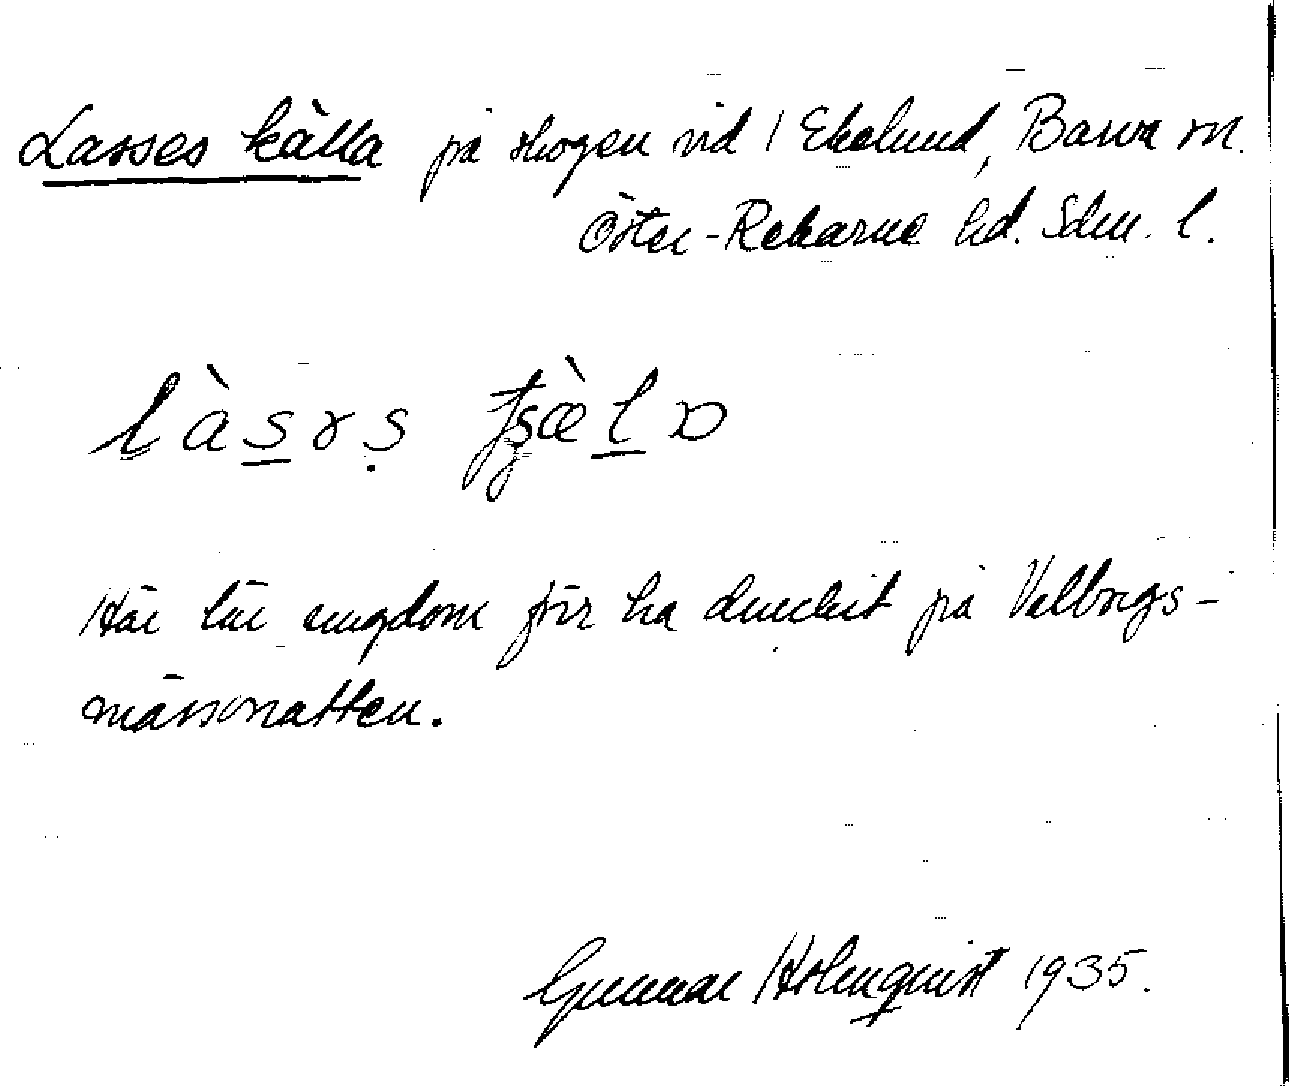 Lasses källa på skogen vid / Ekelund, Barva sn.
Öster-Rekarne hd. Sdm. l.
Här lär ungdom förr ha druckit på Valborgs-
mässonatten.
Gunnar Holmquist 1935.